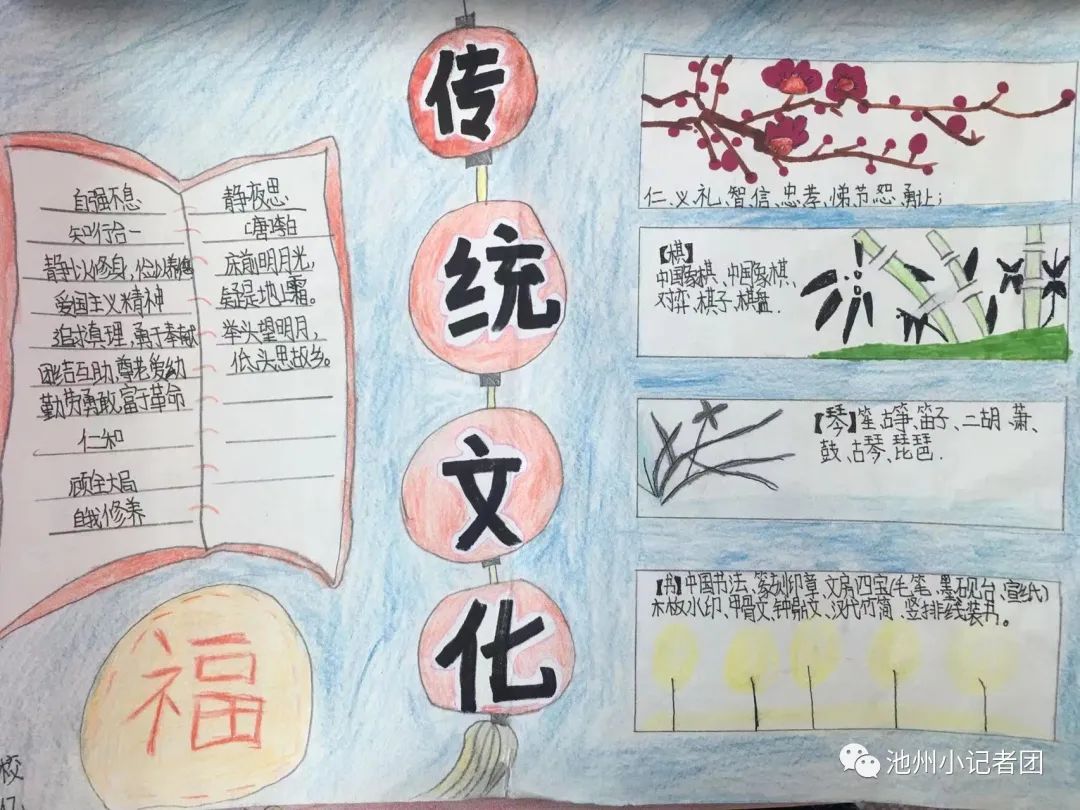 传
统
文
化
自强不息
知行合一
静以修身，俭以养德
爱国主义精神
追求真理，勇于奉献
团结互助，尊老爱幼
勤劳勇敢，富于革命
仁和
顾全大局
自我修养
静夜思
唐李白
床前明月光，
疑是地上霜。
举头望明月，
低头思故乡。
福
仁、义、礼、智、信、忠、孝、悌、节、恕、勇、让；
【棋】
中国象棋、中国象棋、
对弈、棋子、棋盘.
【琴】笙、古筝、笛子、二胡、萧、
鼓、古琴、琵琶.
【书】中国书法、篆刻印章、文房四宝(毛笔、墨、砚台、宣纸)
木板水印、甲骨文、钟鼎文、汉代竹简、竖排线装书。
校
池州小记者团